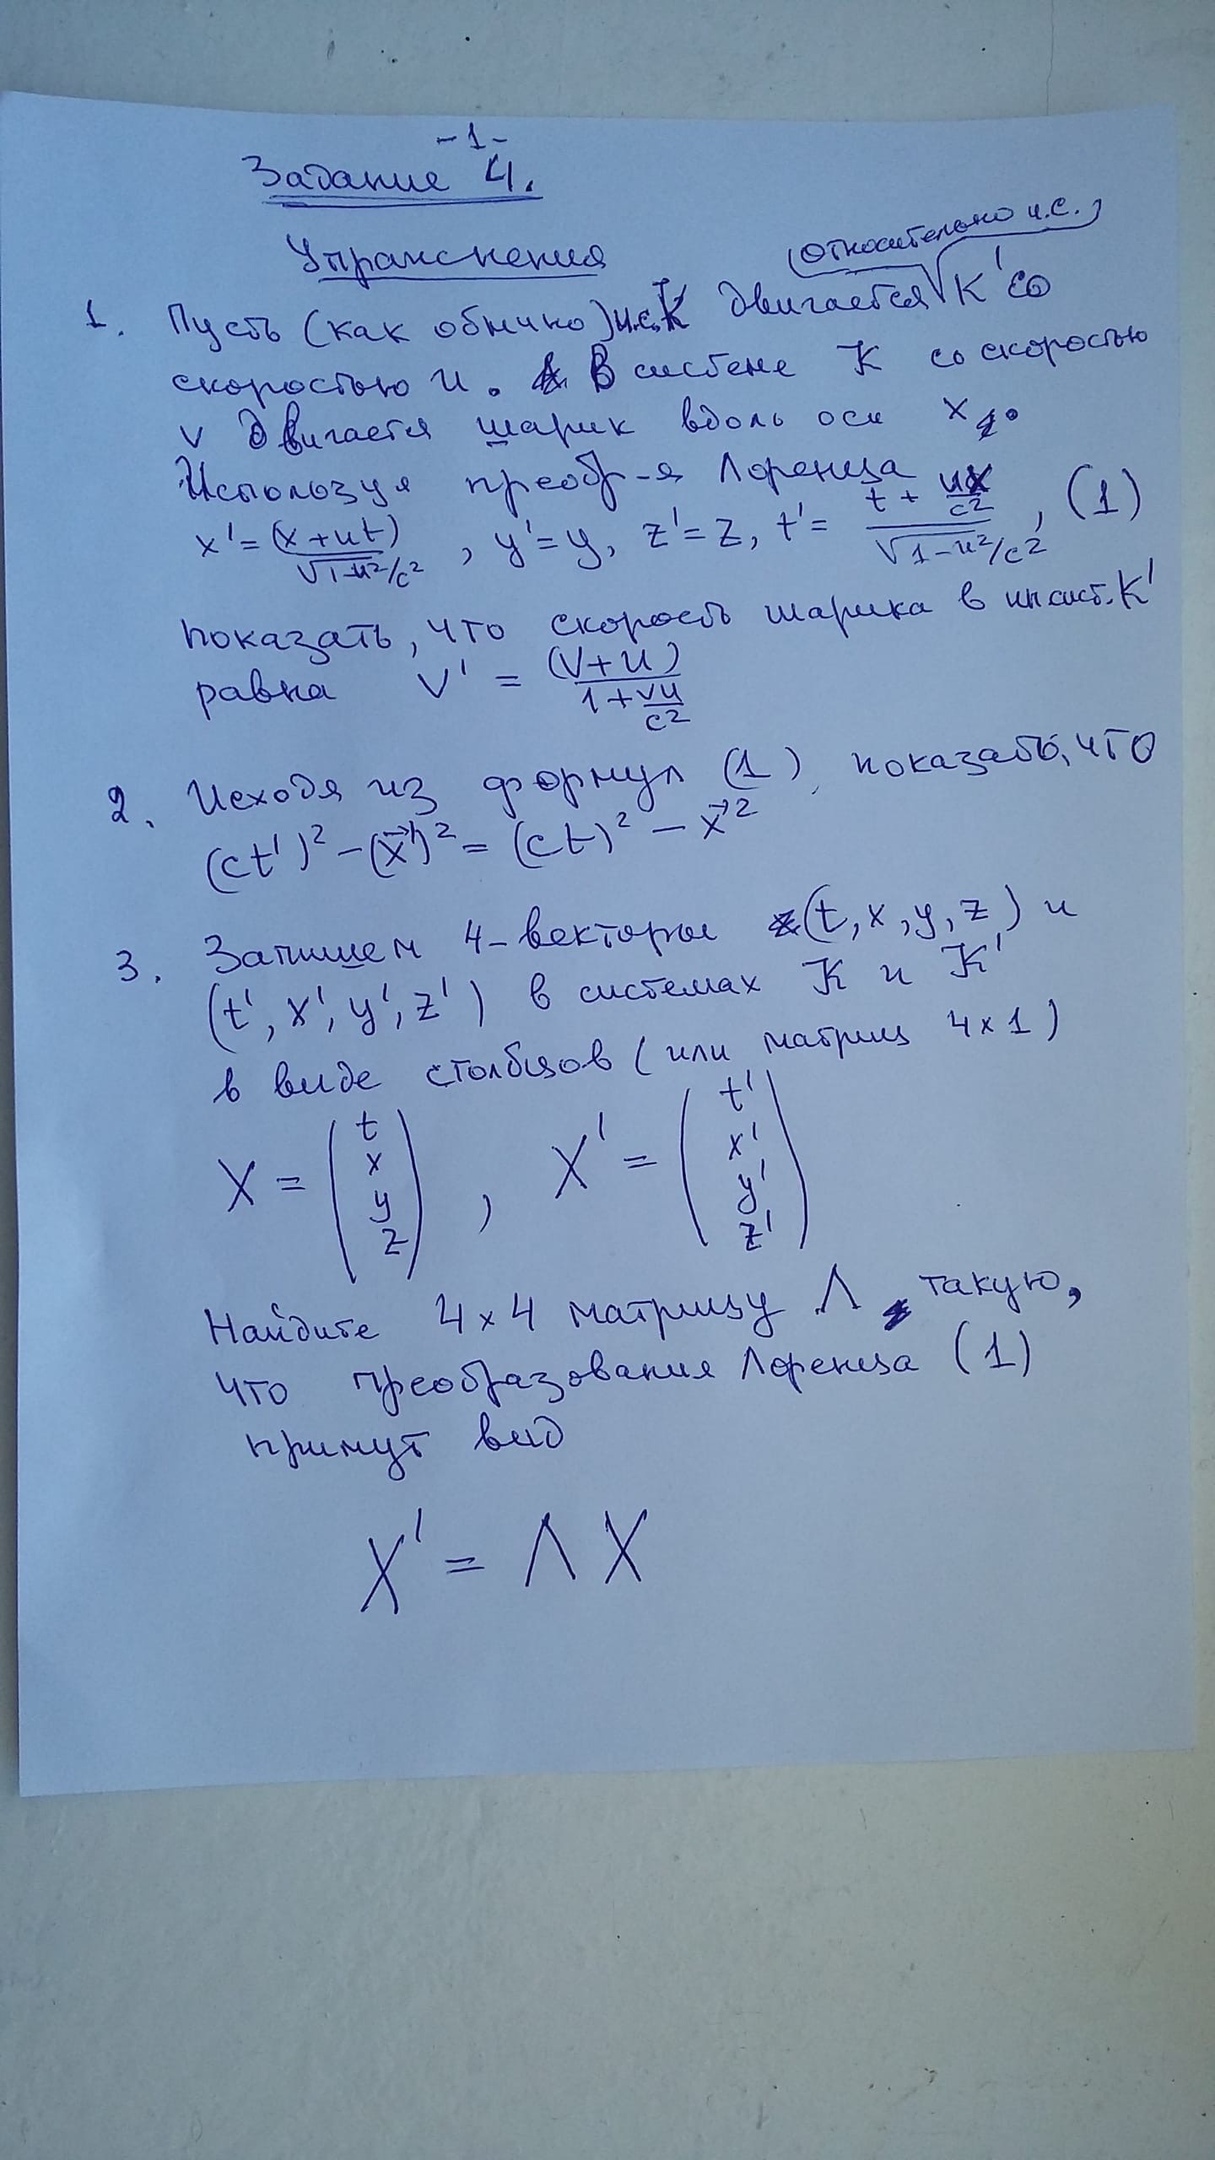 -1-
Задание 4.
Упражнения
(относительно и.с.)
1. Пусть (как обычно) и.с. K двигается √ K' со
скоростью u. В системе K со скоростью
v двигается шарик вдоль оси x.
Используя преобр-я Лоренца
x' = (x+ut)/√1-u²/c², y'=y, z'=z, t' = (t + ux/c²)/√1-u²/c², (1)
показать, что скорость шарика в ин сист. K'
равна v' = (v+u)/(1+vu/c²)
2. Исходя из формул (1), показать, что
(ct')² - (x⃗')² = (ct)² - x⃗²
3. Запишем 4-векторы (t, x, y, z) и
(t', x', y', z') в системах K и K'
в виде столбцов (или матриц 4x1)
X = (t x y z), X' = (t' x' y' z')
Найдите 4x4 матрицу Λ, такую,
что преобразования Лоренца (1)
примут вид
X' = ΛX